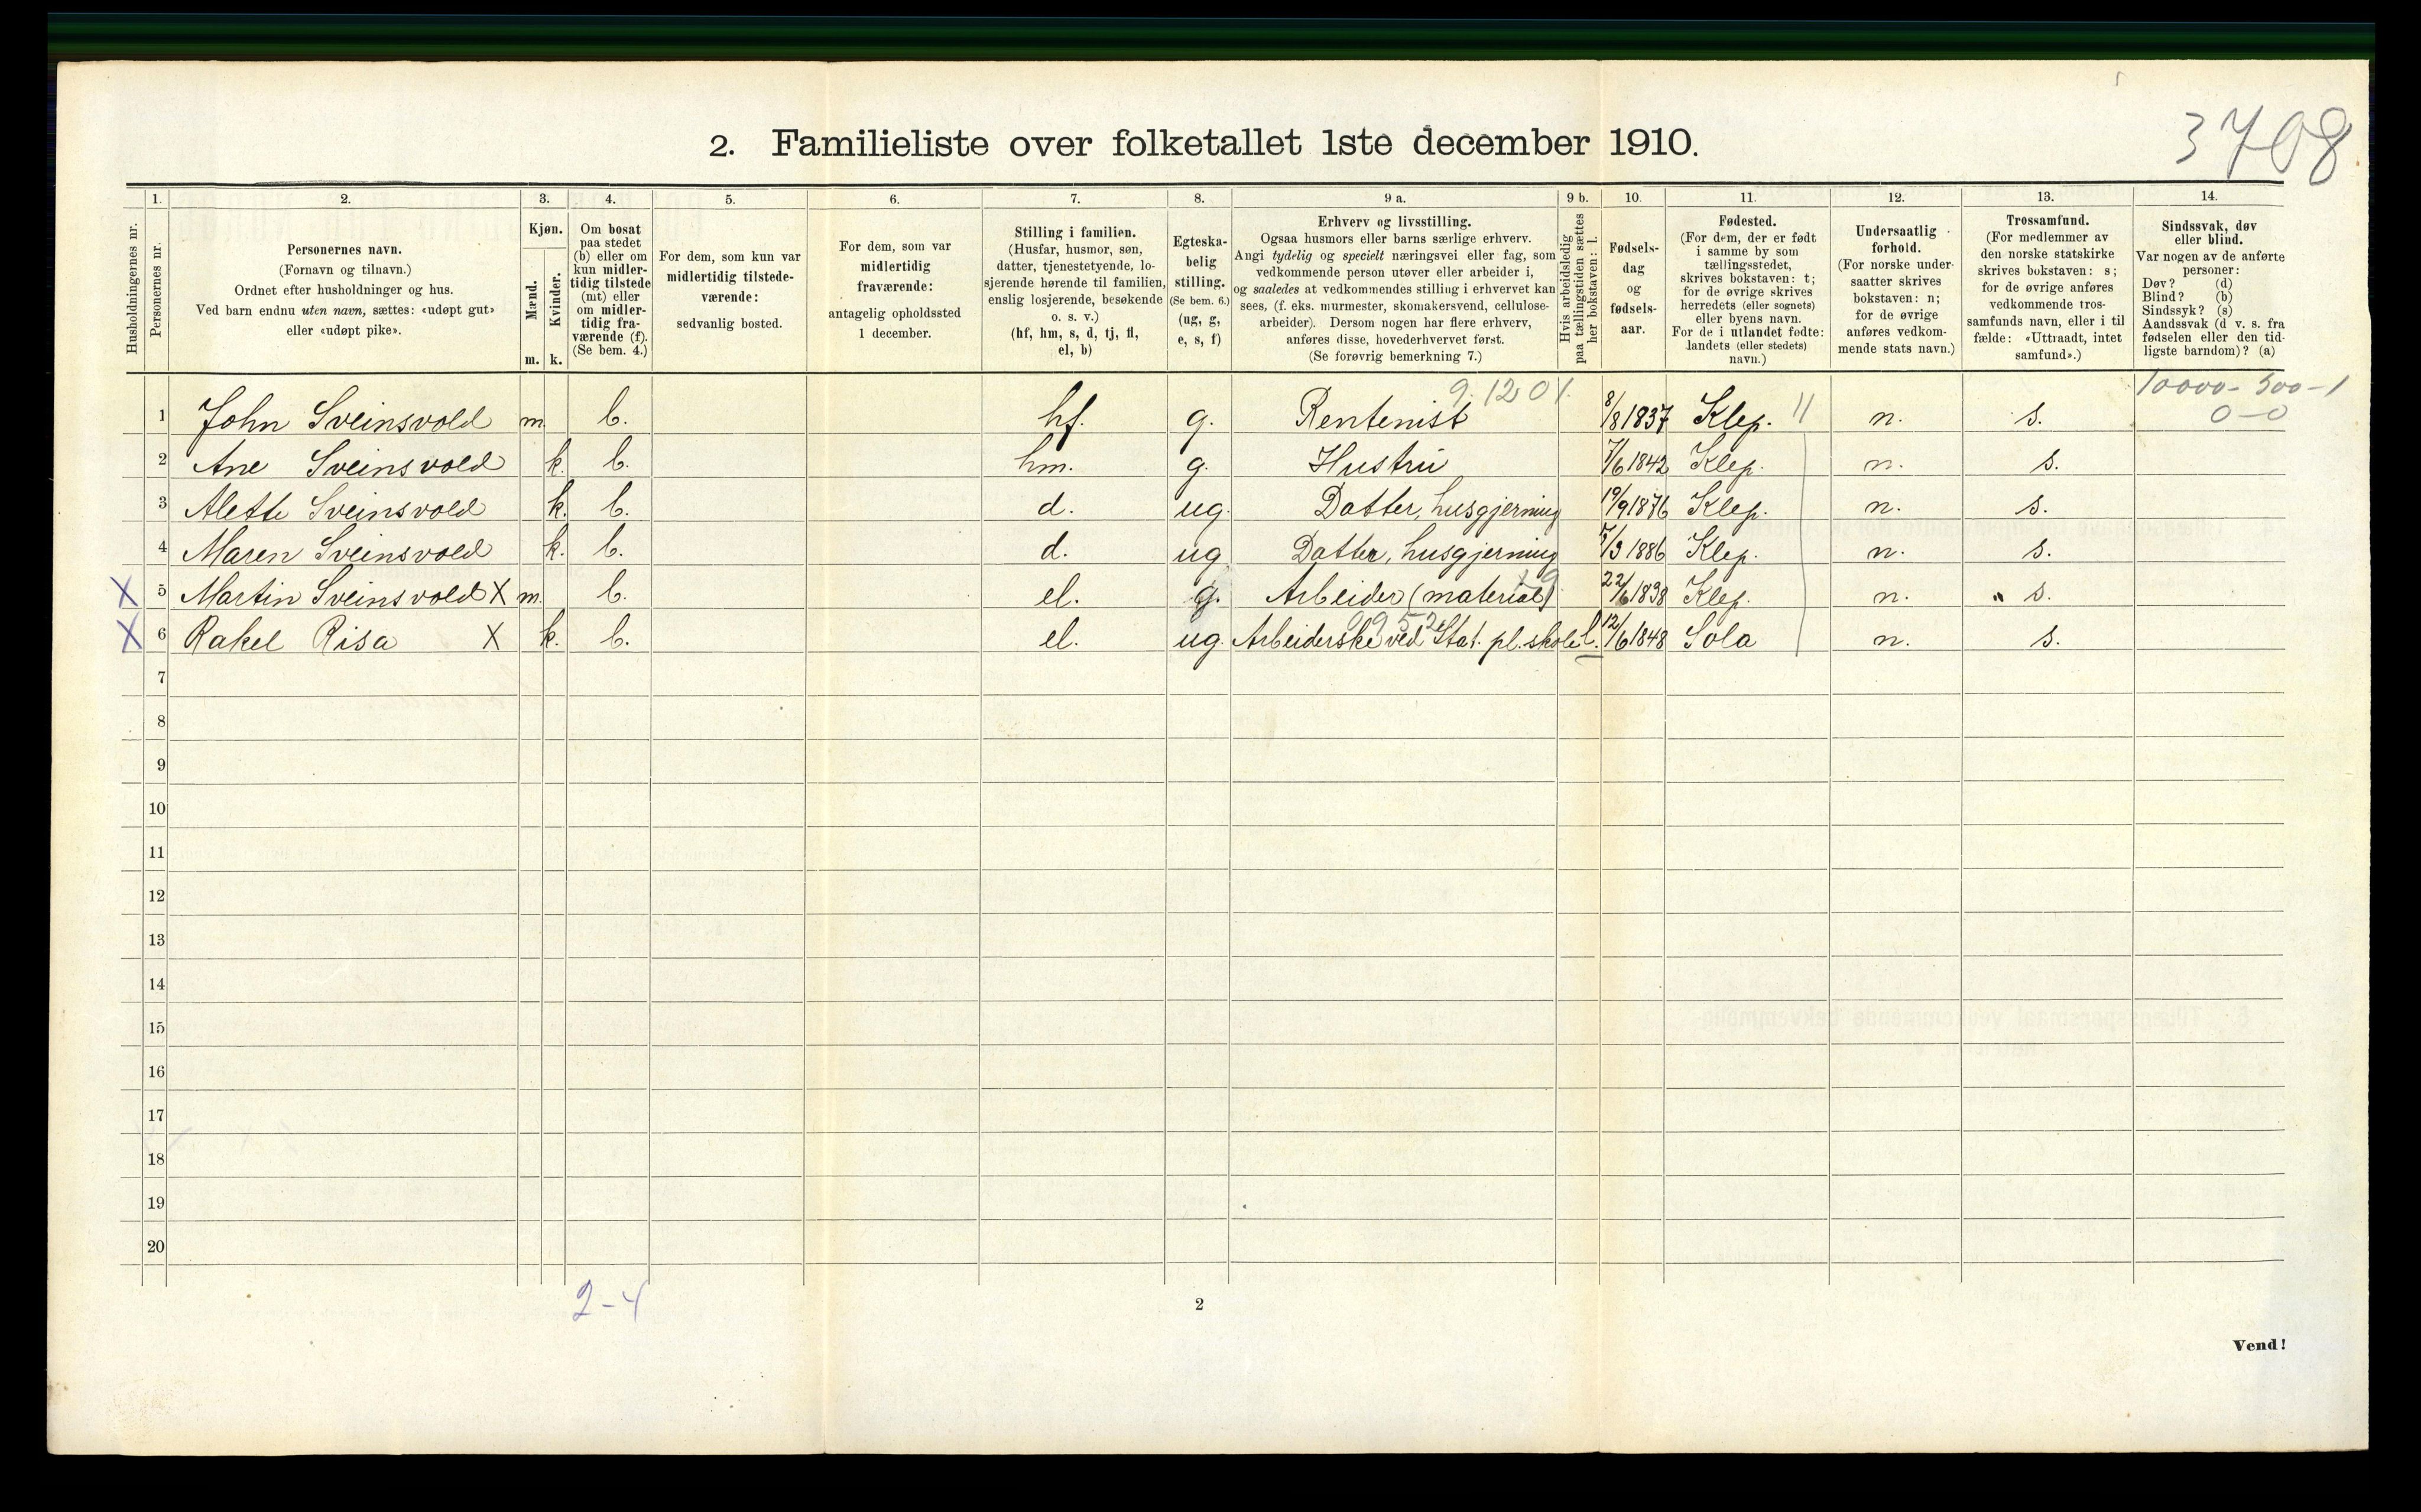 3708
2. Familieliste over folketallet 1ste december 1910.
Husholdningernes nr.
1. Personernes nr.
2. Personernes navn.
(Fornavn og tilnavn.)
Ordnet efter husholdninger og hus.
Ved barn endnu uten navn, sættes: «udøpt gut»
eller «udøpt pike».
3. Kjøn.
Mænd. m.
Kvinder. k.
4. Om bosat
paa stedet
(b) eller om
kun midler-
tidig tilstede
(mt) eller
om midler-
tidig fra-
værende (f).
(Se bem. 4.)
5. For dem, som kun var
midlertidig tilstede-
værende:
sedvanlig bosted.
6. For dem, som var
midlertidig
fraværende:
antagelig opholdssted
1 december.
7. Stilling i familien.
(Husfar, husmor, søn,
datter, tjenestetyende, lo-
sjerende hørende til familien,
enslig losjerende, besøkende
o. s. v.)
(hf, hm, s, d, tj, fl,
el, b)
8. Egteska-
belig
stilling.
(Se bem. 6.)
(ug, g,
e, s, f)
9 a. Erhverv og livsstilling.
Ogsaa husmors eller barns særlige erhverv.
Angi tydelig og specielt næringsvei eller fag, som
vedkommende person utøver eller arbeider i,
og saaledes at vedkommendes stilling i erhvervet kan
sees, (f. eks. murmester, skomakersvend, cellulose-
arbeider). Dersom nogen har flere erhverv,
anføres disse, hovederhvervet først.
(Se forøvrig bemerkning 7.)
9 b. Hvis arbeidsledig
paa tællingstiden sættes
her bokstaven: l.
10. Fødsels-
dag
og
fødsels-
aar.
11. Fødested.
(For dem, der er født
i samme by som
tællingsstedet,
skrives bokstaven: t;
for de øvrige skrives
herredets (eller sognets)
eller byens navn.
For de i utlandet fødte:
landets (eller stedets)
navn.)
12. Undersaatlig
forhold.
(For norske under-
saatter skrives
bokstaven: n;
for de øvrige
anføres vedkom-
mende stats navn.)
13. Trossamfund.
(For medlemmer av
den norske statskirke
skrives bokstaven: s;
for de øvrige anføres
vedkommende tros-
samfunds navn, eller i til
fælde: «Uttraadt, intet
samfund».)
14. Sindssvak, døv
eller blind.
Var nogen av de anførte
personer:
Døv? (d)
Blind? (b)
Sindssyk? (s)
Aandssvak (d. v. s. fra
fødselen eller den tid-
ligste barndom)? (a)
9.1201. 10000-500-1
1 John Sveinsvold m b. hf. g. Rentenist 8/8 1837 Klep. 11 n. s. 0-0
2 Ane Sveinsvold k. b. hm. g. Hustru 7/6 1842 Klep. n. s.
3 Alette Sveinsvold k. b. d. ug. Datter, husgjerning 19/9 1876 Klep. n. s.
4 Maren Sveinsvold k. b. d. ug. Datter, husgjerning /3 1886 Klep. n. s.
X 5 Martin Sveinsvold X m. b. el. g. Arbeider (material) 22/6 1838 Klep. n. s.
X 6 Rakel Risa X k. b. el. ug. Arbeiderske ved Stat. pl. skole l. 12/6 1848 Sola n. s.
7
8
9
10
11
12
13
14
15
16
17
18
19
20
2-4
2
Vend!